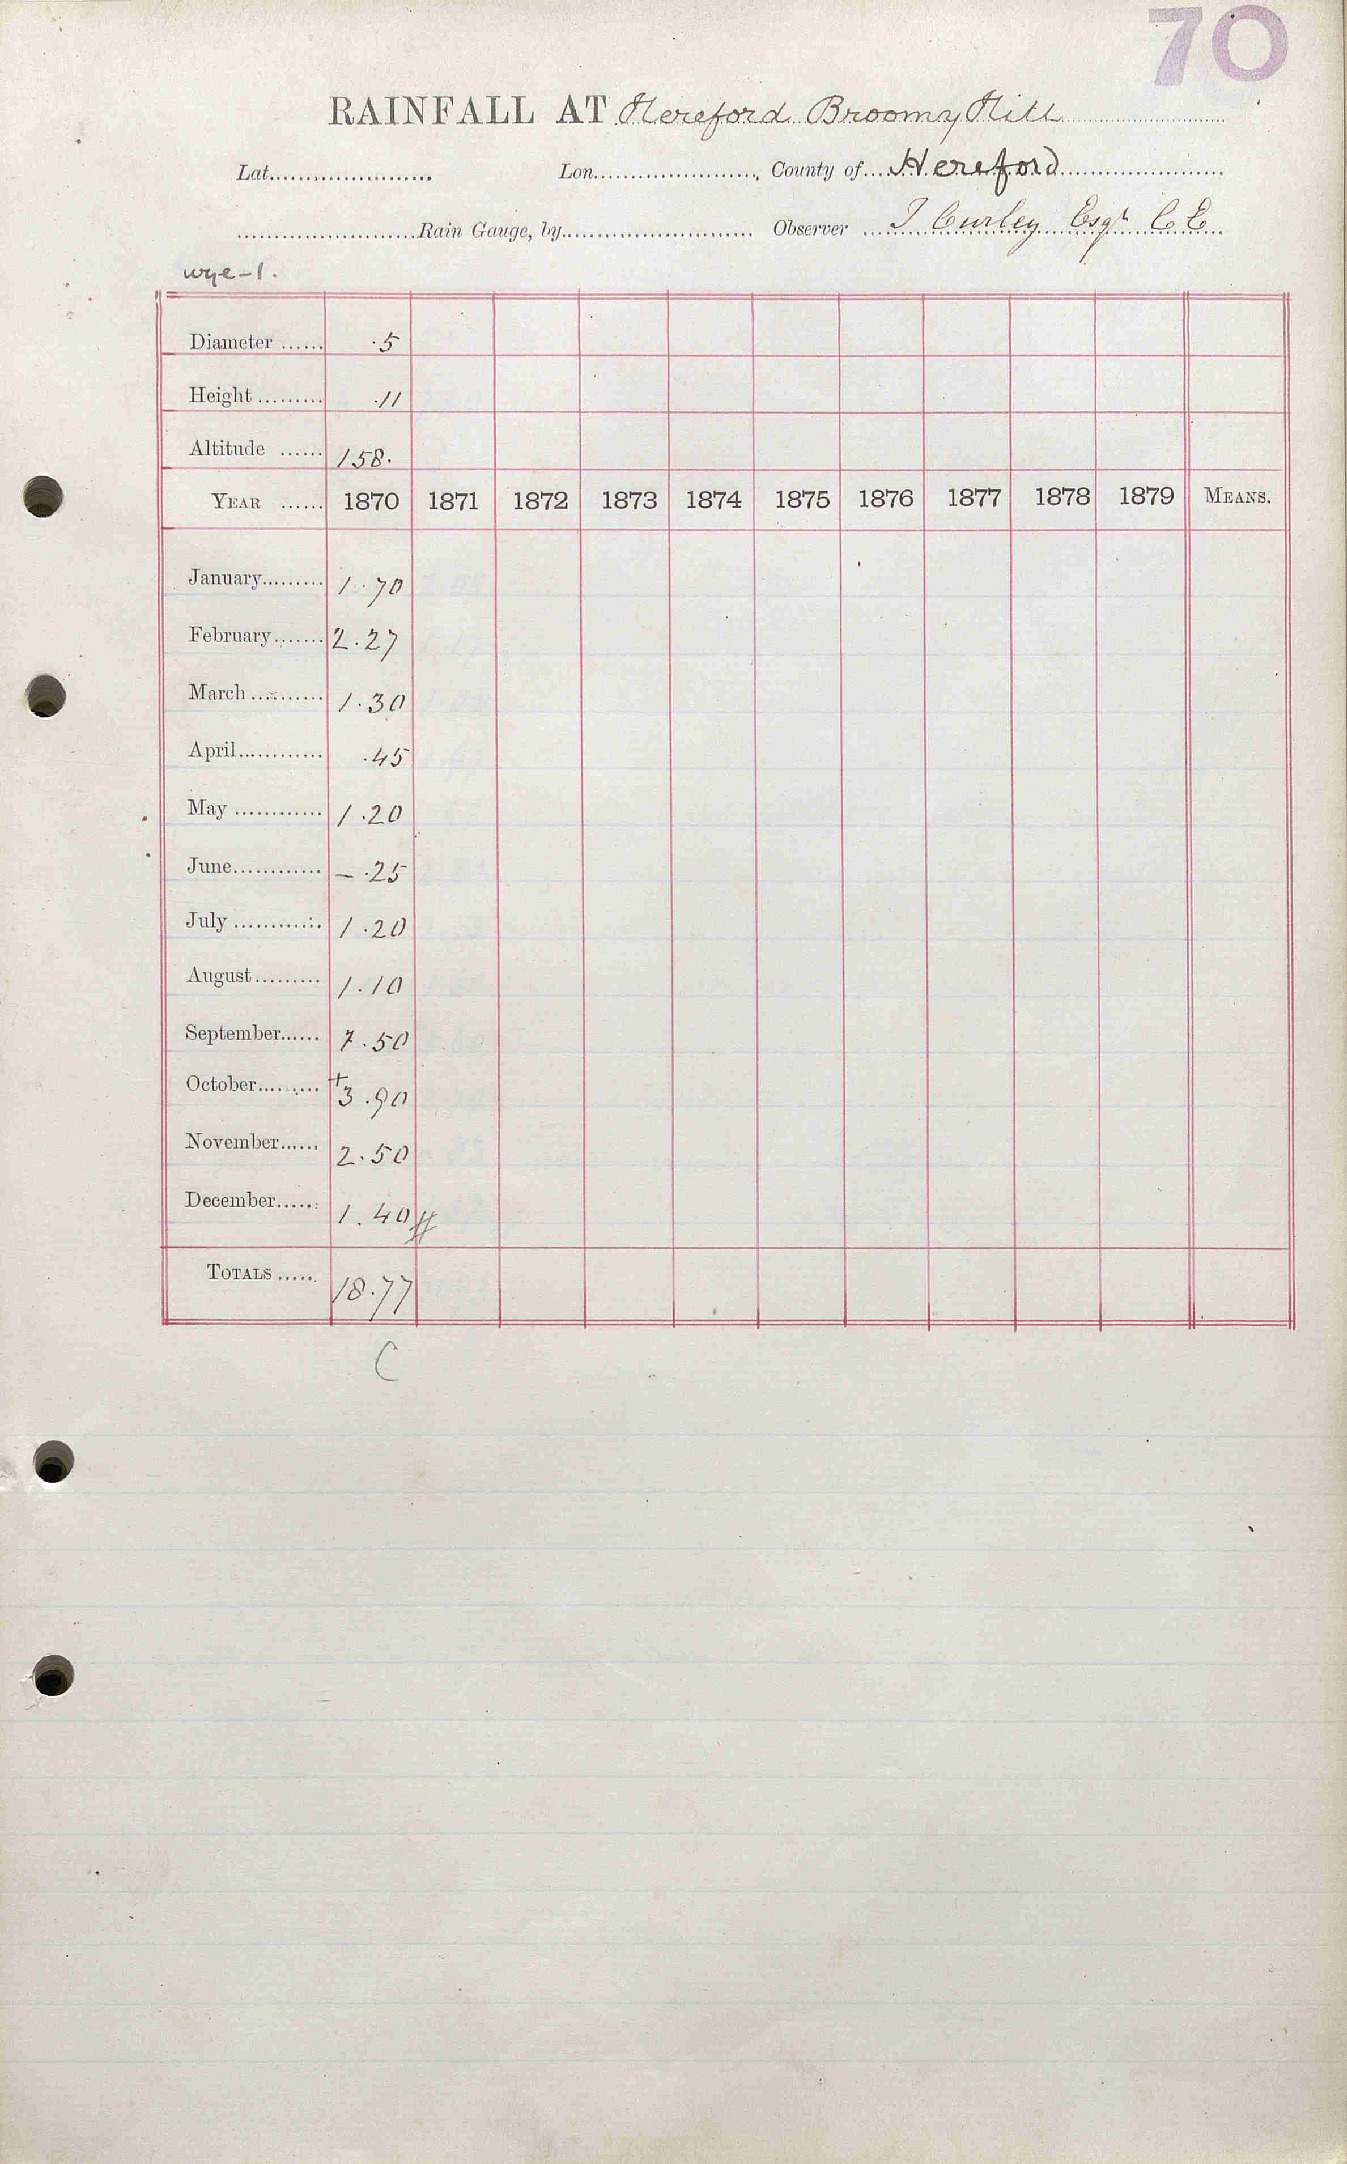 70
RAINFALL AT Hereford Broomy Hill
Lat. Lon. County of Hereford
Rain Gauge, by Observer J Curley Esqr C E
wye-1.
Diameter ...... .5
Height ......... .11
Altitude ...... 158.
YEAR ...... 1870 1871 1872 1873 1874 1875 1876 1877 1878 1879 MEANS.
January......... 1.70
February....... 2.27
March .......... 1.30
April............ .45
May ............ 1.20
June............ – .25
July ............ 1.20
August......... 1.10
September...... 1.50
October......... +3.90
November...... 2.50
December...... 1.40 #
TOTALS ...... 18.77
C